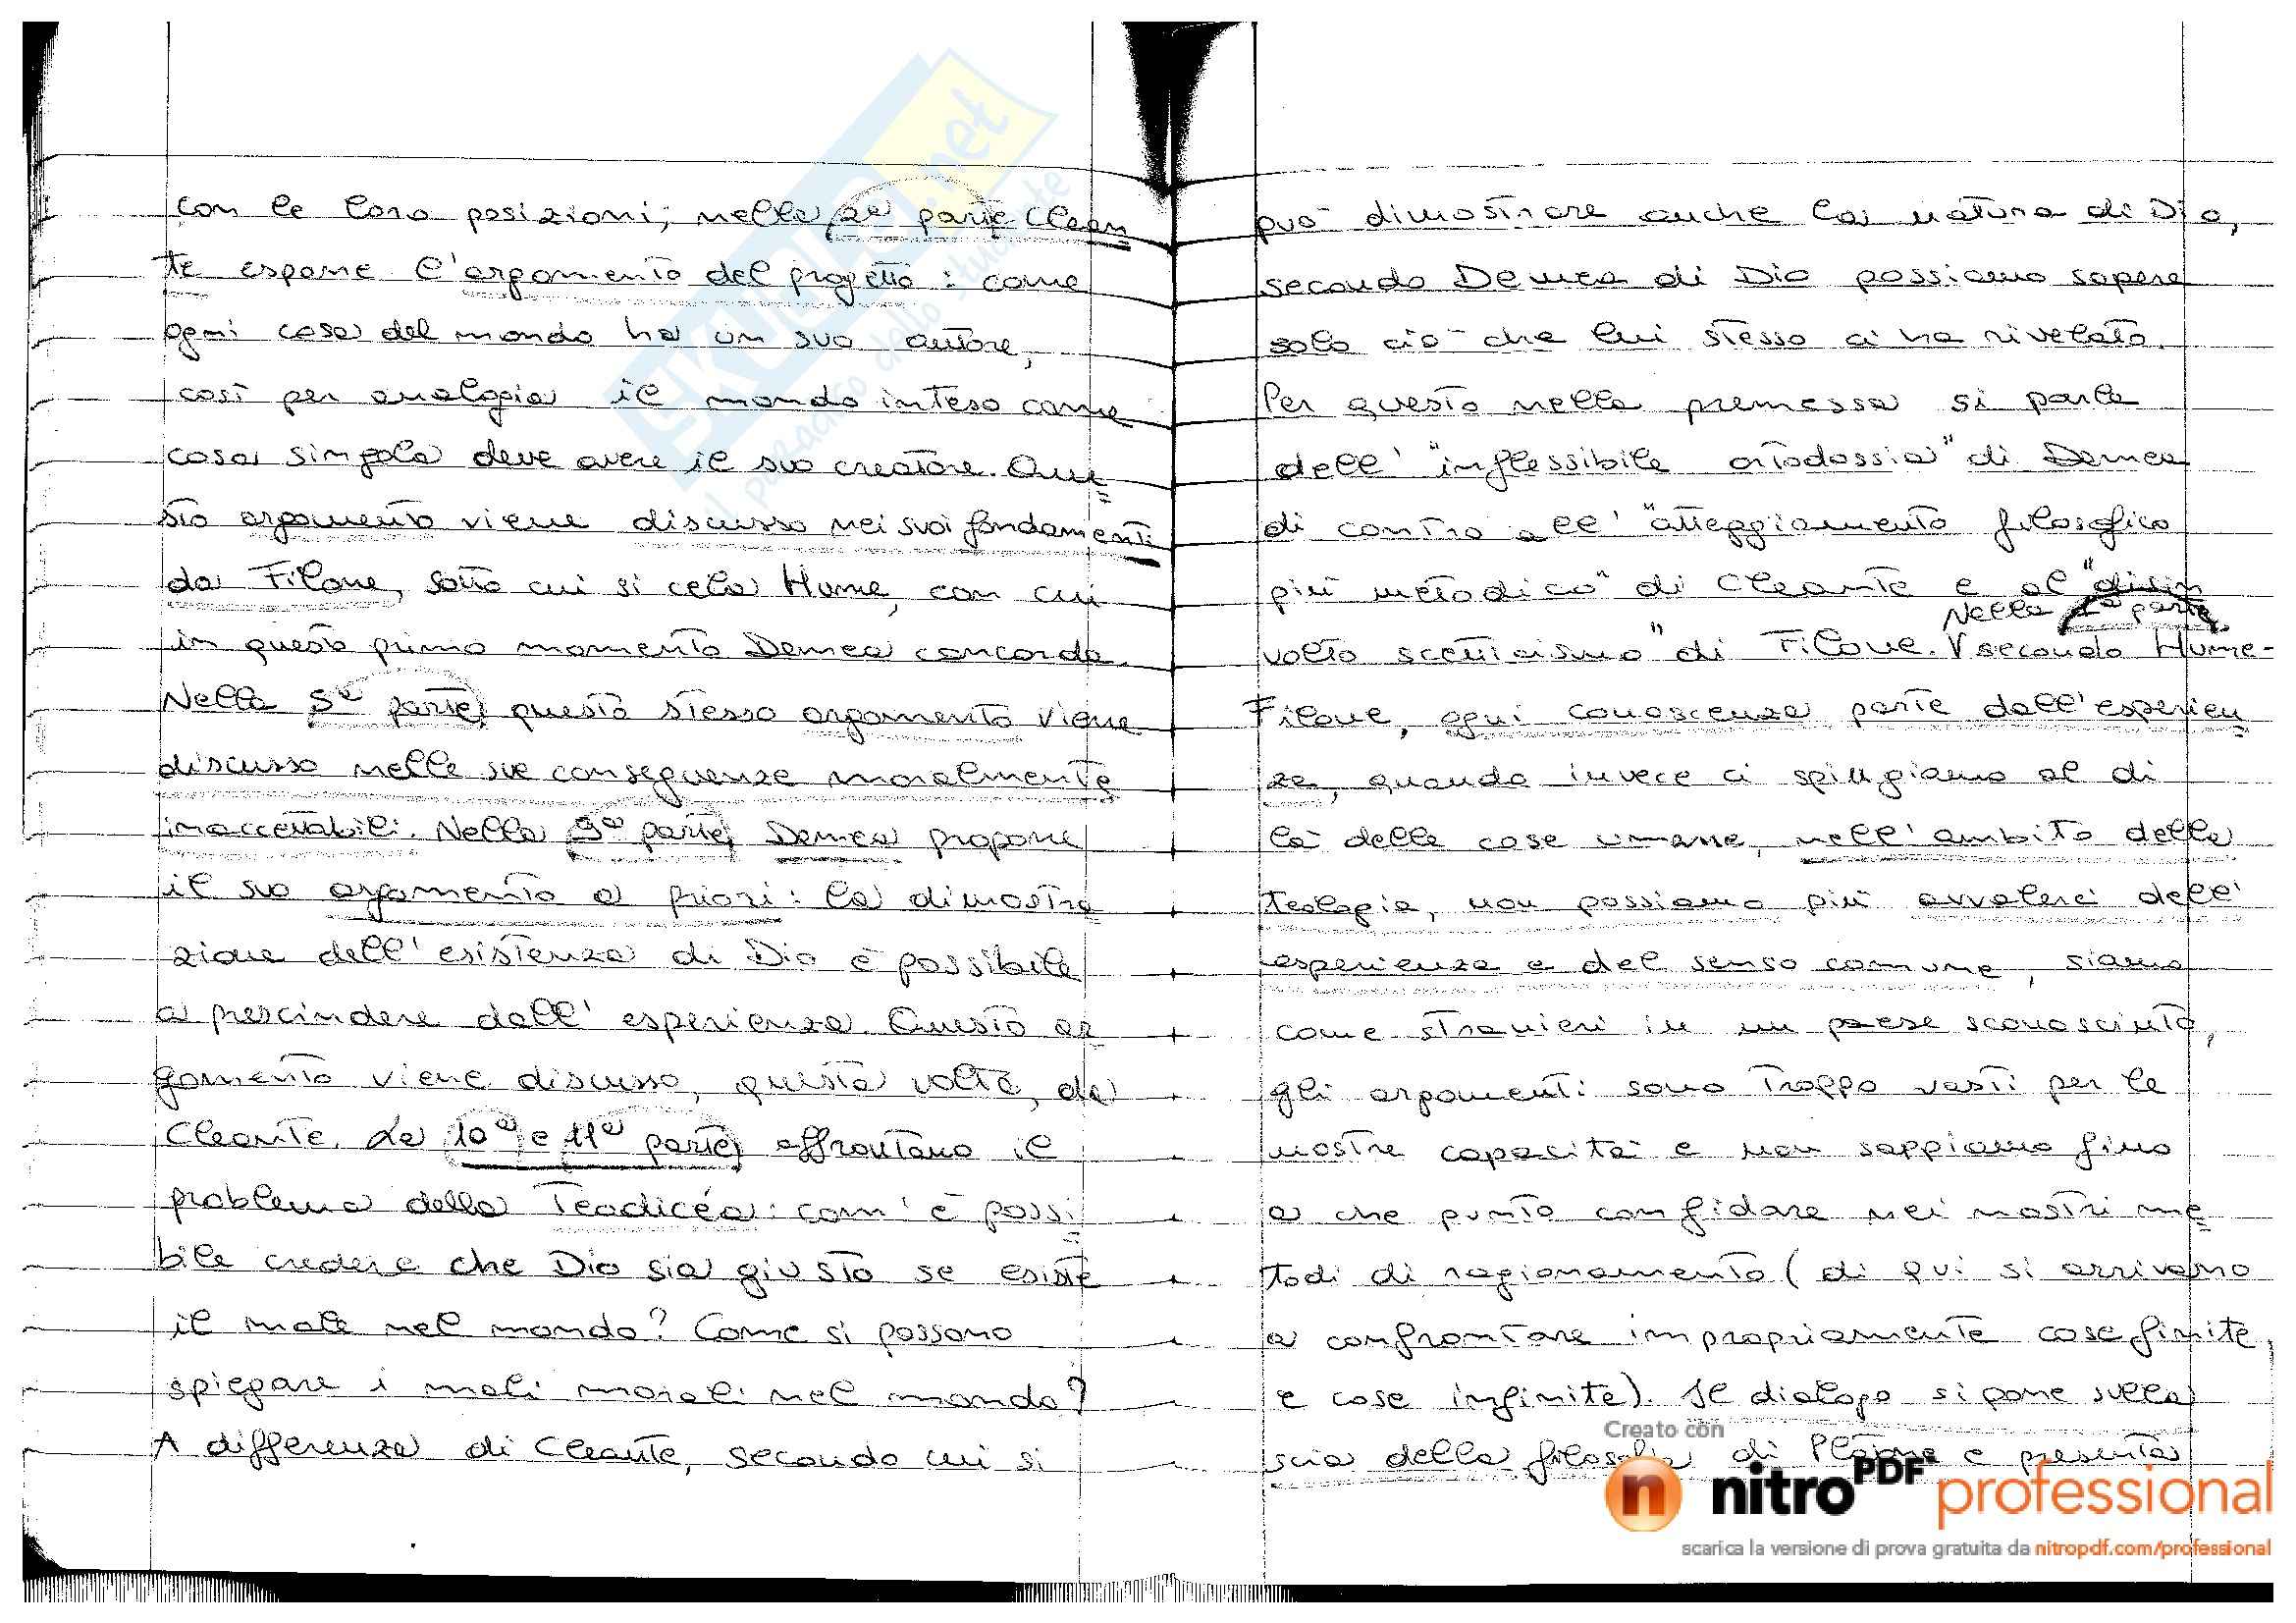 con le loro posizioni; nella 2ª parte Clean
te espone l'argomento del progetto: come
ogni cosa del mondo ha un suo autore,
così per analogia il mondo inteso come
cosa singola deve avere il suo creatore. Que=
sto argomento viene discusso nei suoi fondamenti
da Filone, sotto cui si cela Hume, con cui
in questo primo momento Demea concorda.
Nella 5ª parte questo stesso argomento viene
discusso nelle sue conseguenze moralmente
inaccettabili. Nella 9ª parte Demea propone
il suo argomento a priori: la dimostra
zione dell'esistenza di Dio è possibile
a prescindere dall'esperienza. Questo ar
gomento viene discusso, questa volta, da
Cleante. La 10ª e 11ª parte affrontano il
problema della Teodicéa: com'è possi=
bile credere che Dio sia giusto se esiste
il male nel mondo? Come si possono
spiegare i mali morali nel mondo?
A differenza di Cleante, secondo cui si
può dimostrare anche la natura di Dio,
secondo Demea di Dio possiamo sapere
solo ciò che lui stesso ci ha rivelato.
Per questo nella premessa si parla
dell' "inflessibile ortodossia" di Demea
di contro all' "atteggiamento filosofico
più metodico" di Cleante e al "disin
Nella parte
volto scetticismo" di Filone. V secondo Hume-
Filone, ogni conoscenza parte dall'esperien
za, quando invece ci spingiamo al di
là delle cose umane, nell'ambito della
teologia, non possiamo più avvalerci dell'
esperienza e del senso comune, siamo
come stranieri in un paese sconosciuto,
gli argomenti sono troppo vasti per le
nostre capacità e non sappiamo fino
a che punto confidare nei nostri me=
todi di ragionamento (di qui si arrivano
a confrontare impropriamente cose finite
e cose infinite). Il dialogo si pone sulla
scia della filosofia di Platone e presenta
SKUOLA.net
il paradiso dello studente
Creato con
nitroPDF professional
scarica la versione di prova gratuita da nitropdf.com/professional